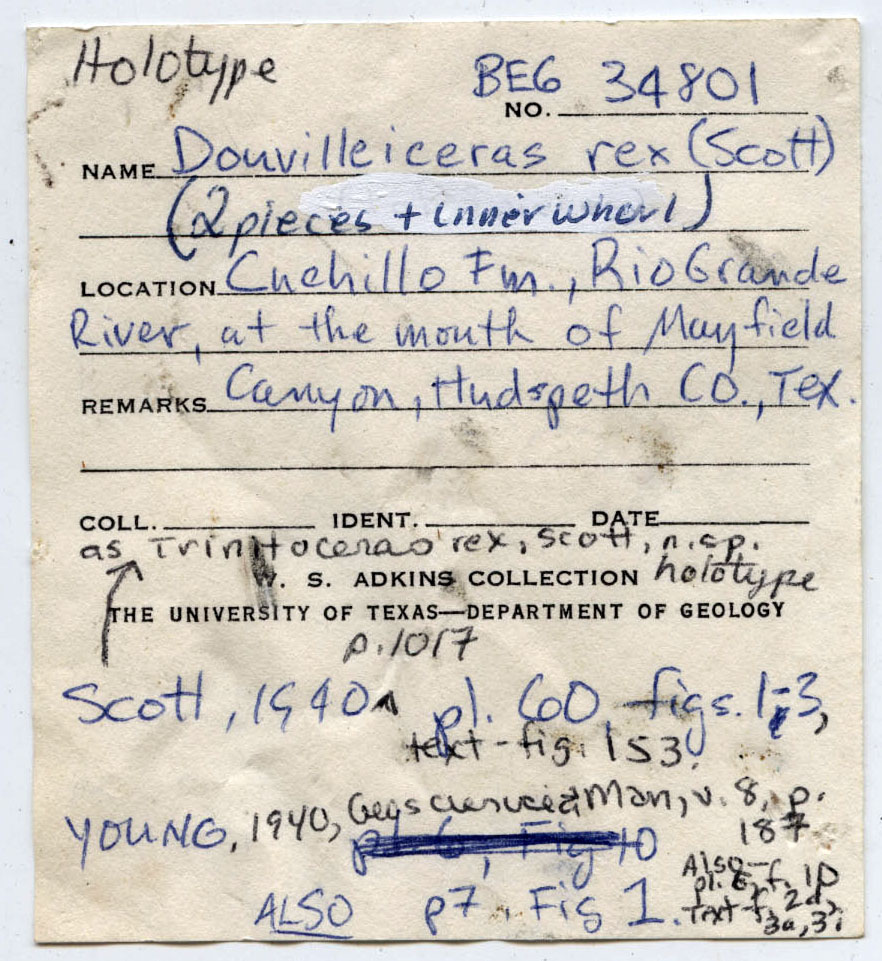 Holotype
BEG 34801
NO.
NAME Douvilleiceras rex (Scott)
(2 pieces + inner whorl)
LOCATION Cuchillo Fm., Rio Grande
River, at the mouth of Mayfield
REMARKS Canyon, Hudspeth Co., Tex.
COLL. IDENT. DATE
as Trinitoceras rex, Scott, n.sp.
W. S. ADKINS COLLECTION holotype
THE UNIVERSITY OF TEXAS—DEPARTMENT OF GEOLOGY
p. 1017
Scott, 1940 ^ pl. 60, figs. 1, 3,
text-fig. 153.
YOUNG, 1940, Man, v. 8, p.
187
pl. 6, Fig 10
Also-
pl. 6, f. 10
ALSO p7, Fig 1. text-f. 2d,
3a, 3i